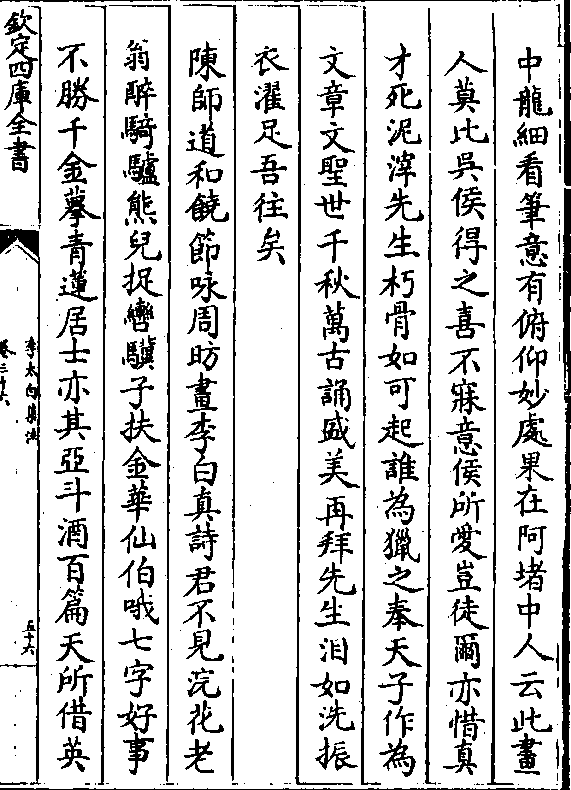 中龍細看筆意有俯仰妙處果在阿堵中人云此畫
人莫比吳侯得之喜不寐意侯所愛豈徒爾亦惜真
才死泥滓先生朽骨如可起誰為獵之奉天子作為
文章文聖世千秋萬古誦盛美再拜先生泪如洗振
衣濯足吾往矣
陳師道和饒節咏周昉畫李白真詩君不見浣花老
翁醉騎驢熊兒捉轡驥子扶金華仙伯哦七字好事
不勝千金摹青蓮居士亦其亞斗酒百篇天所借英
欽定四庫全書
李太白集注
卷三十六
五十六